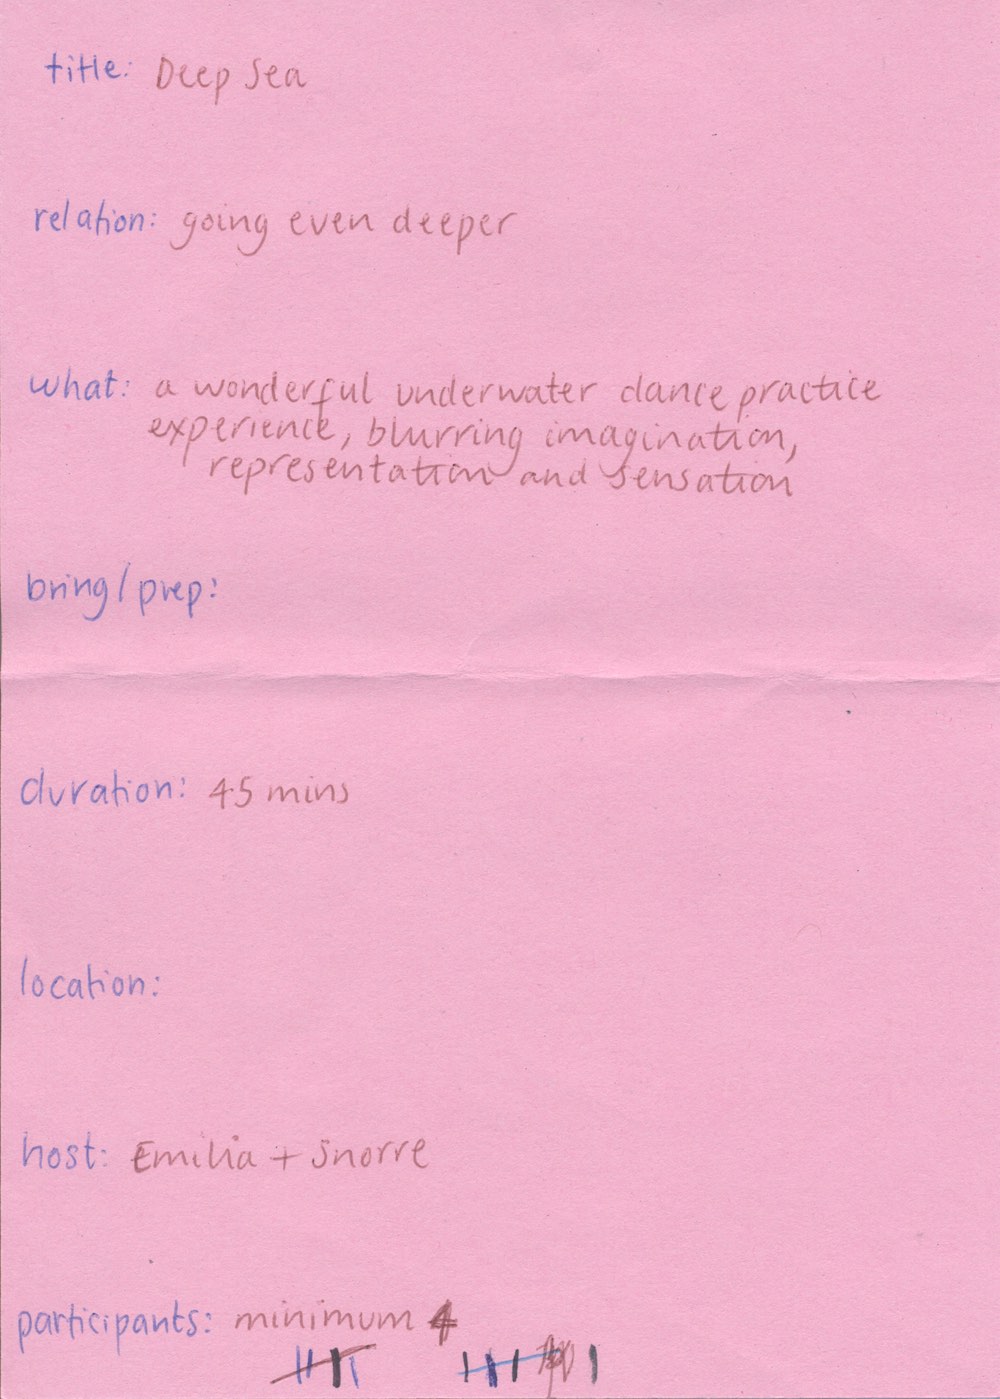 title: Deep Sea
relation: going even deeper
what: a wonderful underwater dance practice
experience, blurring imagination,
representation and sensation
bring/prep:
duration: 45 mins
location:
host: Emilia + Snorre
participants: minimum 4